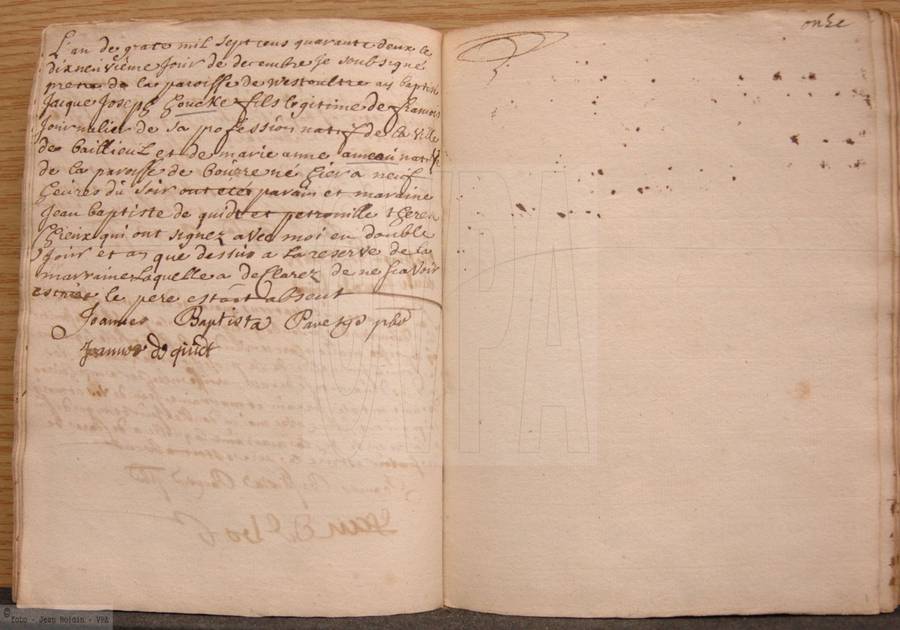 onze
L'an de grace mil sept cens quarante deux le
dixneuvième jour de decembre je soubsigné
pretre de la paroisse de Westoultre ay baptisé
Jacque Joseph Goucke fils legitime de francois
Journalier de sa profession natif de la ville
de bailleul et de marie anne ameau natif
de la paroisse de bourre ne hier a neuf
heures du soir ont etez parain et maraine
Jean baptiste de quidt et petronille
Gheux qui ont signez avec moi en double
jour et an que dessus a la reserve de la
marraine laquelle a declarez de ne scavoir
escrire le pere estant absent
Joannes Baptista pbr
Joannes de quidt
VPA
© foto - Jesp - VPA